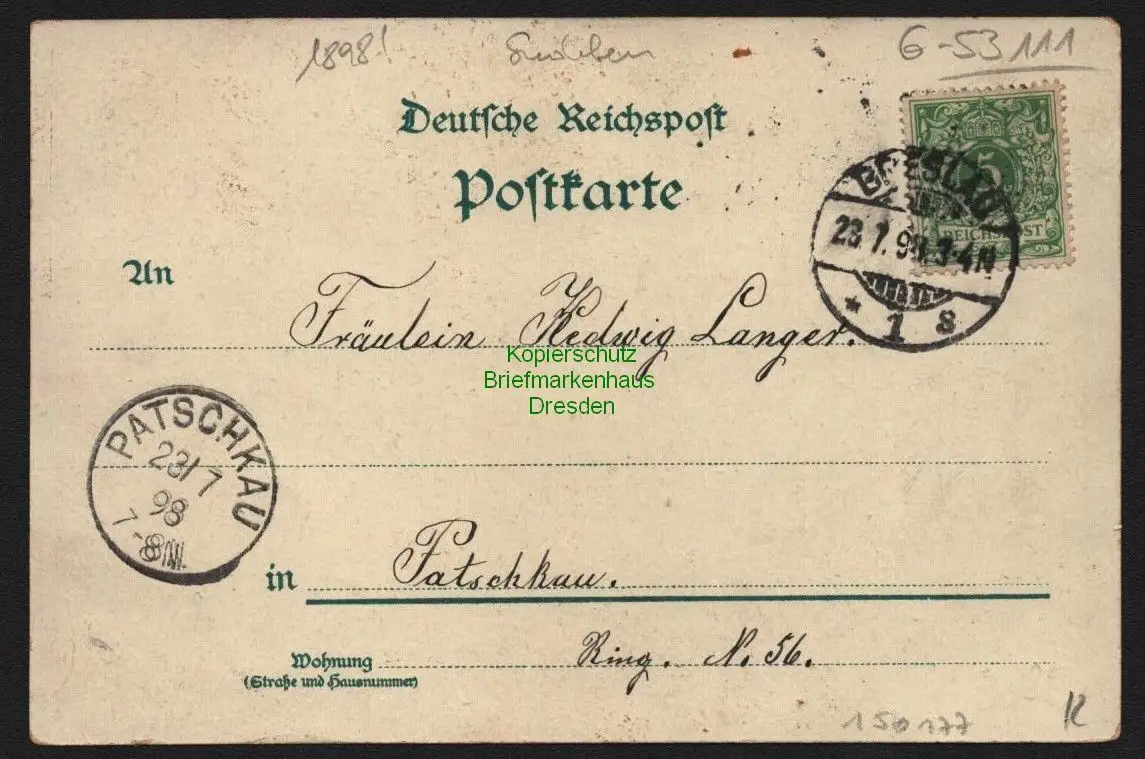 1898!
G-53111
Deutsche Reichspost
Postkarte
5
REICHSPOST
BRESLAU
23.7.98. 3-4N
* 1 s
An
Fräulein Hedwig Langer.
Kopierschutz
Briefmarkenhaus
Dresden
PATSCHKAU
23/7
98
7-8N.
in Patschkau.
Wohnung Ring. N. 56.
(Straße und Hausnummer)
150177